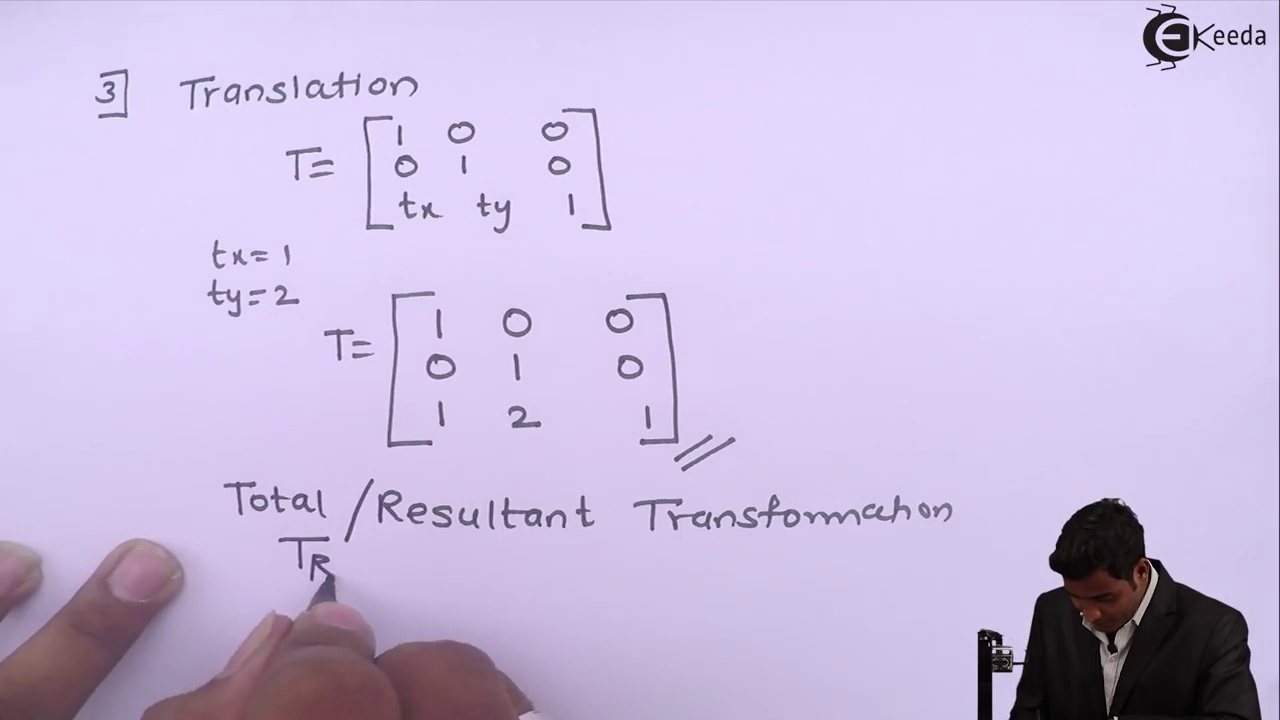 EKeeda
3] Translation
T= [ 1 0 0
0 1 0
tx ty 1 ]
tx=1
ty=2
T= [ 1 0 0
0 1 0
1 2 1 ]
Total / Resultant Transformation
TR